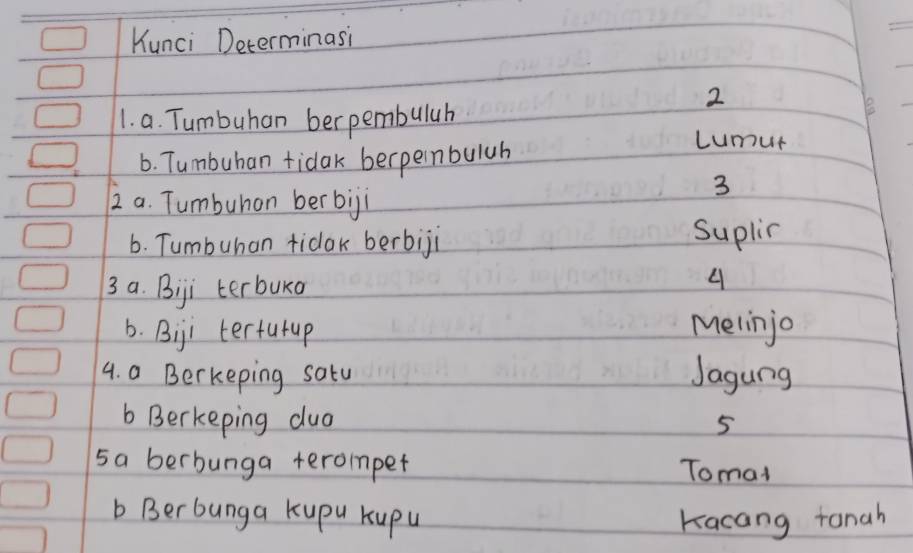 Kunci Determinasi
1. a. Tumbuhan berpembuluh 2
b. Tumbuhan tidak berpembuluh Lumut
2 a. Tumbuhan berbiji 3
b. Tumbuhan tidak berbiji Suplir
3 a. Biji terbuka 4
b. Biji tertutup Melinjo
4. a Berkeping satu Jagung
b Berkeping dua 5
5a berbunga terompet Tomat
b Berbunga kupu kupu Kacang tanah